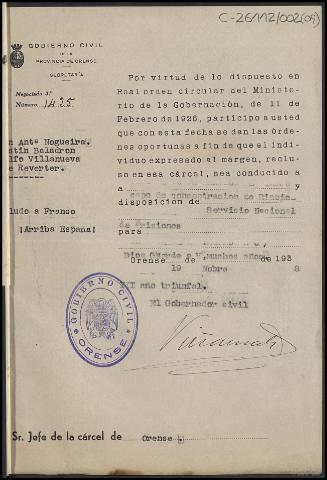 C-26112/002(09)
GOBIERNO CIVIL
DE LA
PROVINCIA DE ORENSE
SECRETARÍA
Negociado 3º
Número 1425
n Antº Nogueira.
stín Baladrón
lfo Villanueva
e Reverter.
ludo a Franco
¡Arriba España!
Por virtud de lo dispuesto en
Real orden circular del Ministerio
de la Gobernación, de 11 de
Febrero de 1926, participo a usted
que con esta fecha se dan las órde-
nes oportunas a fin de que el
individuo expresado al margen, reclu-
so en esa cárcel, sea conducido a
a
campo de concentracion de
disposición de Servicio Nacional
de Prisiones
para
Dios Guarde a V. muchos años
Orense de de 193
19 Nobre 8
III año triunfal.
El Gobernador civil
GOBIERNO CIVIL
ORENSE
Sr. Jefe de la cárcel de Orense